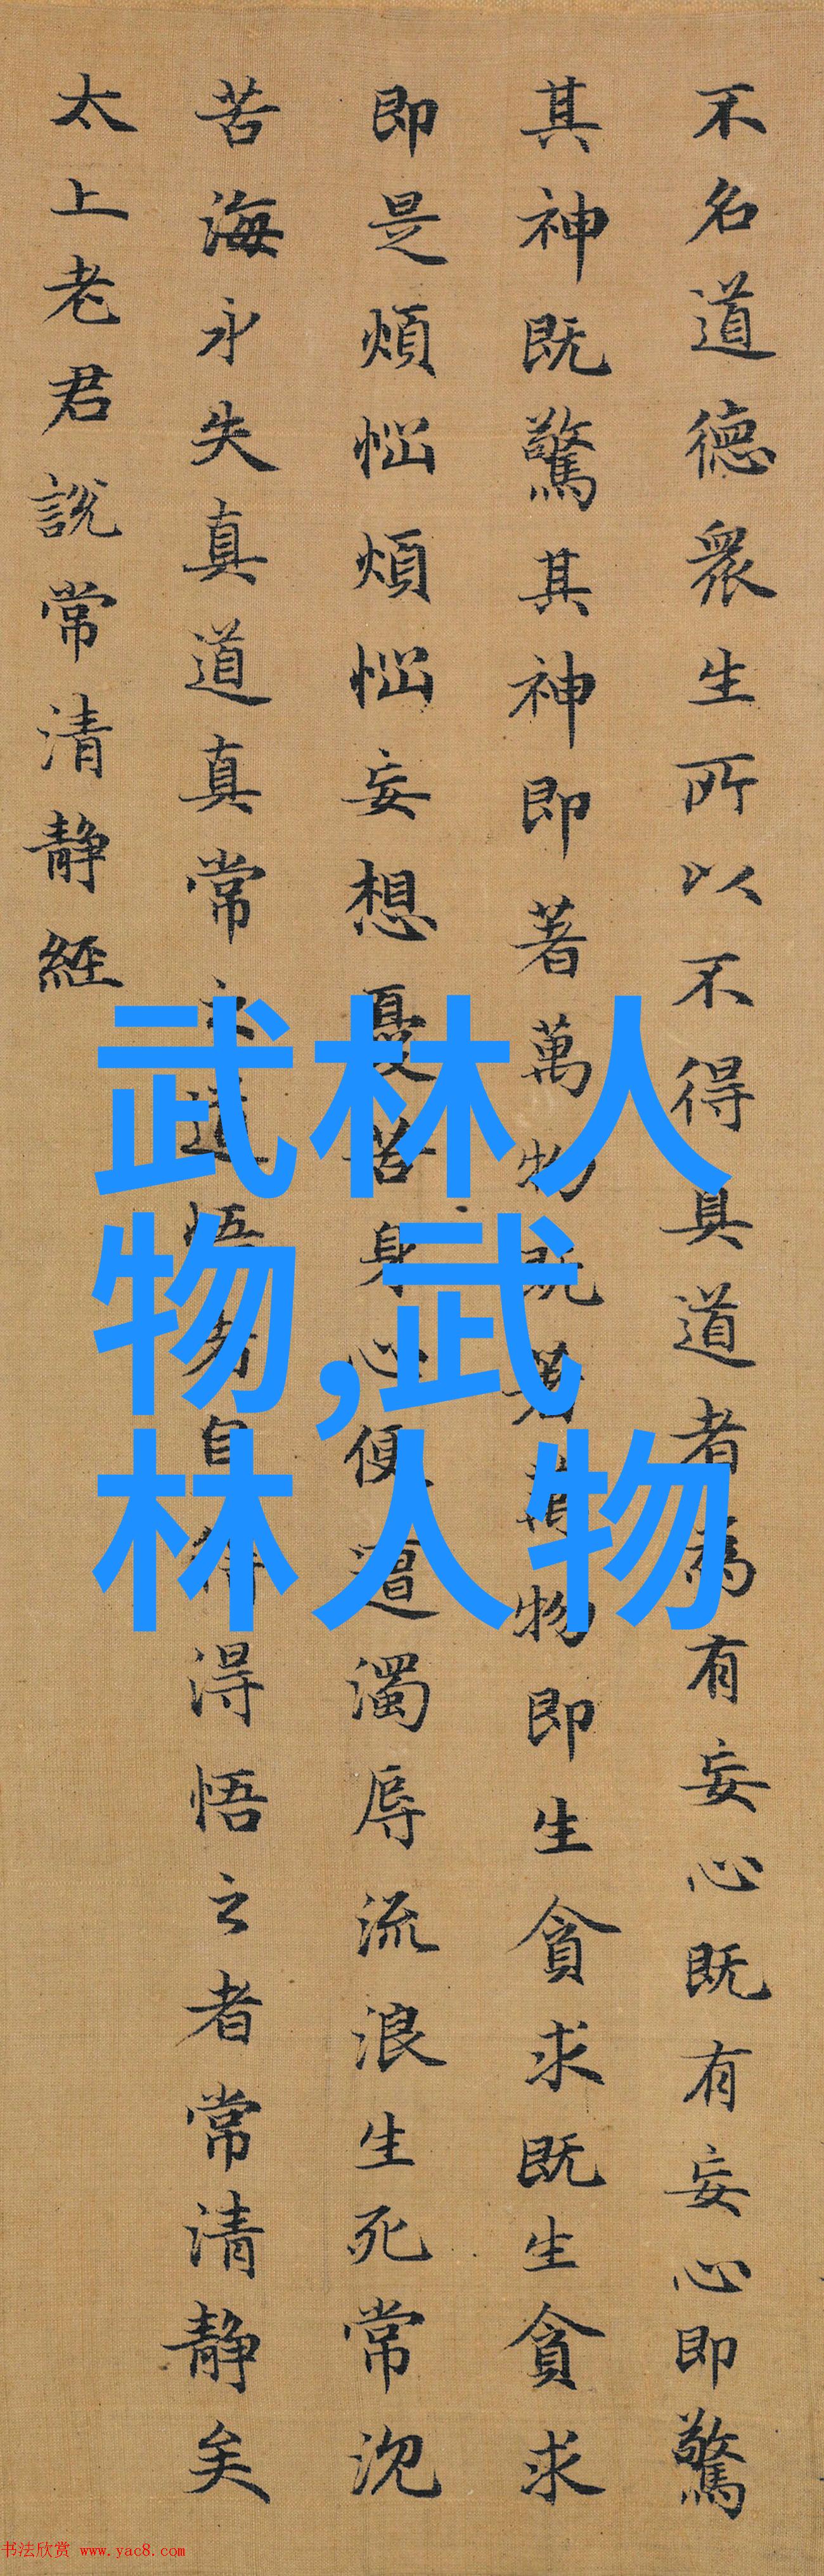 不名道德眾生所以不得真道者為有妄心既有妄心即驚
其神既驚其神即著萬物既著萬物即生貪求既生貪求
即是煩惱煩惱妄想憂苦身心便遭濁辱流浪生死常沉
苦海永失真道真常之道悟者自得得悟之者常清靜矣
太上老君說常清靜經
武林人
物,武
林人物
书法欣赏 www.yac8.com